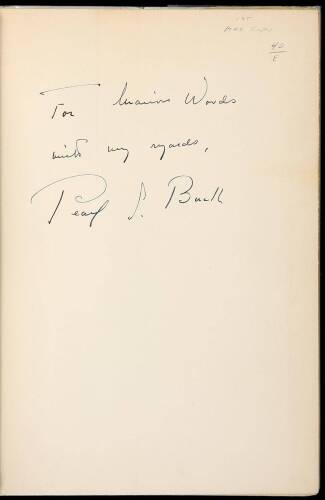 1st
40
E
For Marion Woods
with my regards,
Pearl S. Buck